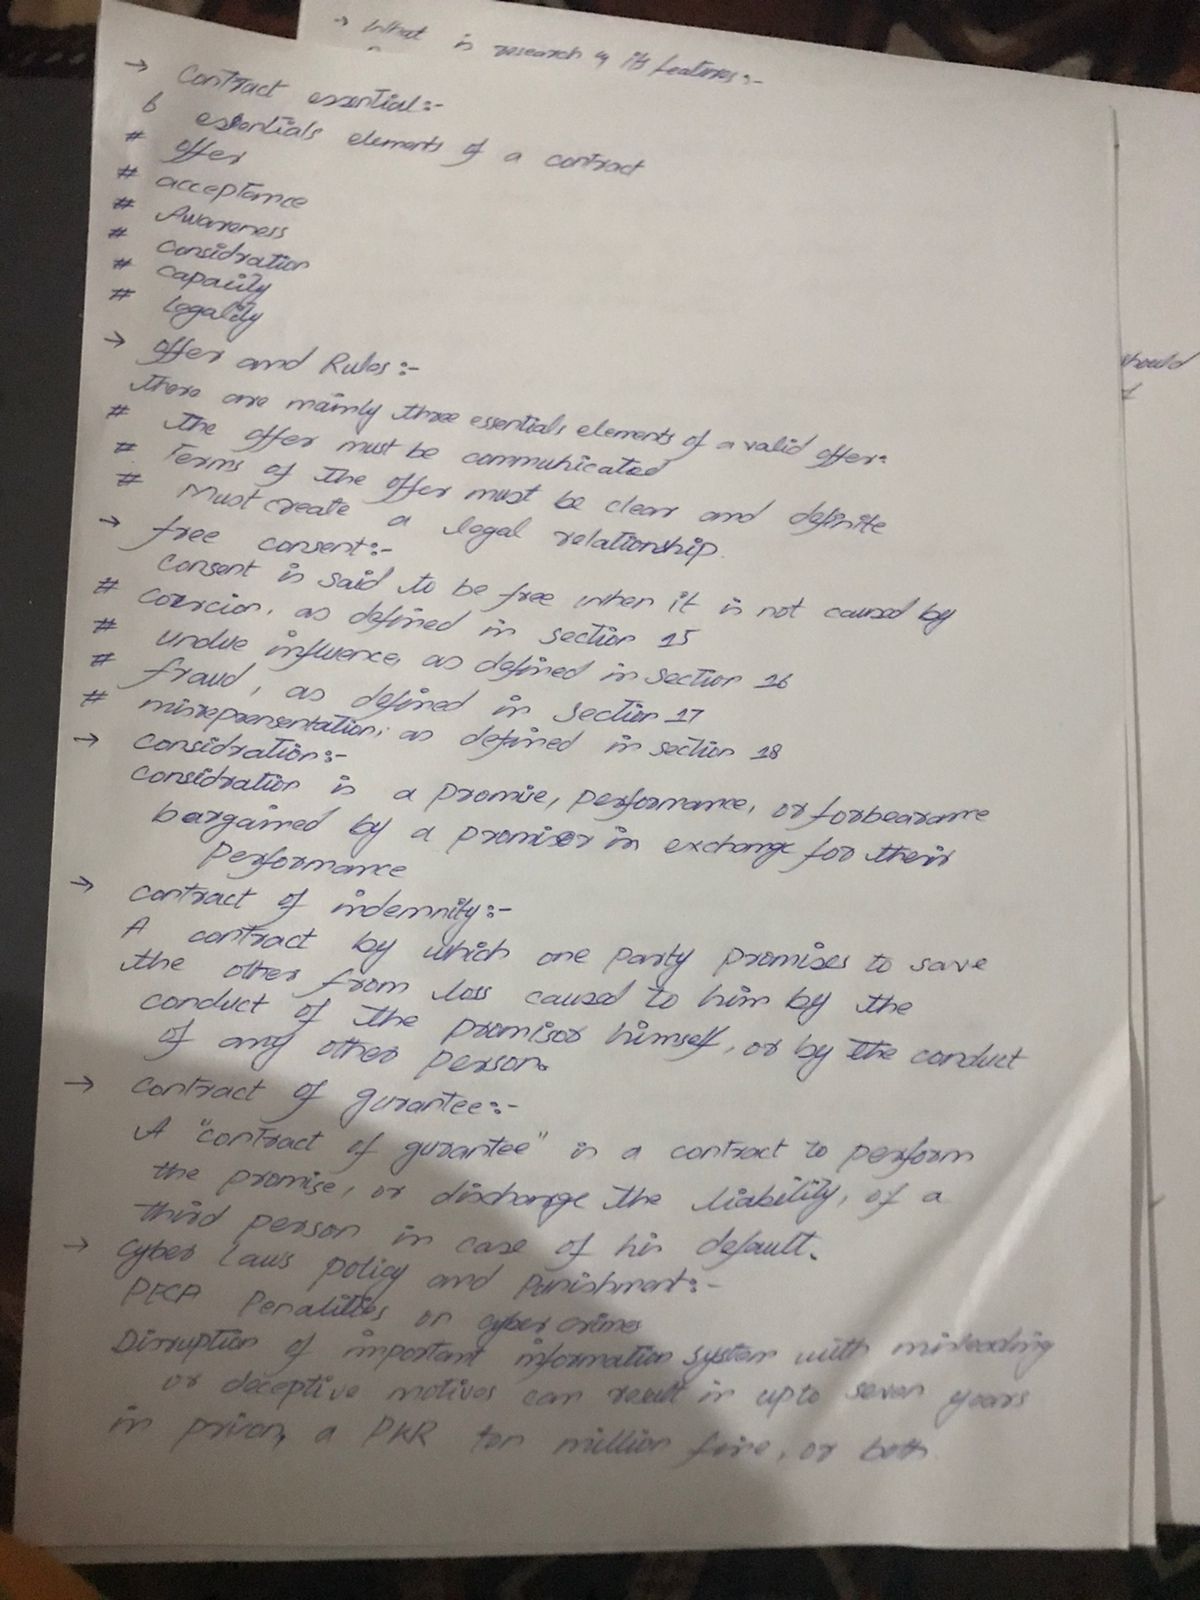 → What is research & its features:-
→ Contract essential:-
6 essentials elements of a contract
# offer
# acceptance
# Awareness
# Considration
# Capacity
# Legality
→ Offer and Rules:-
there are mainly three essentials elements of a valid offer:
# The offer must be communicated
# Terms of the offer must be clear and definite
# Must create a legal relationship.
→ free consent:-
Consent is said to be free when it is not caused by
# coercion, as defined in section 15
# undue influence, as defined in section 16
# fraud, as defined in section 17
# misrepresentation, as defined in section 18
→ Considration:-
Considration is a promise, performance, or forbearance
bargained by a promisor in exchange for their
performance
→ Contract of indemnity:-
A contract by which one party promises to save
the other from loss caused to him by the
conduct of the promisor himself, or by the conduct
of any other person.
→ Contract of gurantee:-
A "contract of gurantee" is a contract to perform
the promise, or discharge the liability, of a
third person in case of his default.
→ Cyber Laws policy and punishment:-
PECA Penalities on cyber crimes
Disruption of important information system with misleading
or deceptive motives can result in upto seven years
in prison, a PKR ten million fine, or both
should